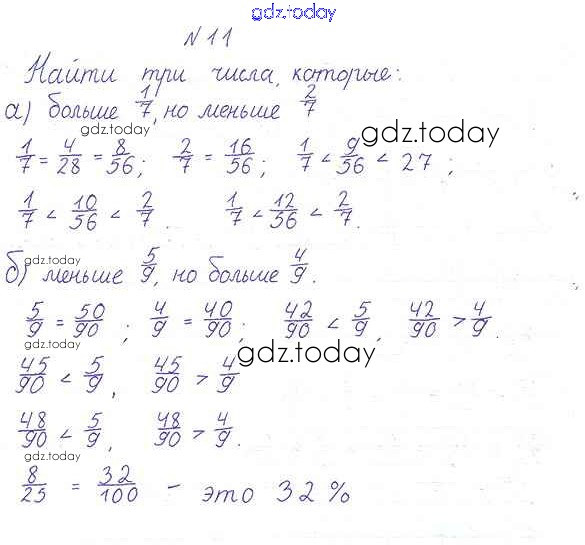 gdz.today
N 11
Найти три числа, которые:
а) больше 1/7, но меньше 2/7
gdz.today
gdz.today
1/7 = 4/28 = 8/56; 2/7 = 16/56; 1/7 < 9/56 < 27;
1/7 < 10/56 < 2/7. 1/7 < 12/56 < 2/7.
gdz.today
б) меньше 5/9, но больше 4/9.
5/9 = 50/90; 4/9 = 40/90; 42/90 < 5/9, 42/90 > 4/9.
gdz.today
gdz.today
45/90 < 5/9, 45/90 > 4/9
48/90 < 5/9, 48/90 > 4/9.
gdz.today
8/25 = 32/100 - это 32 %